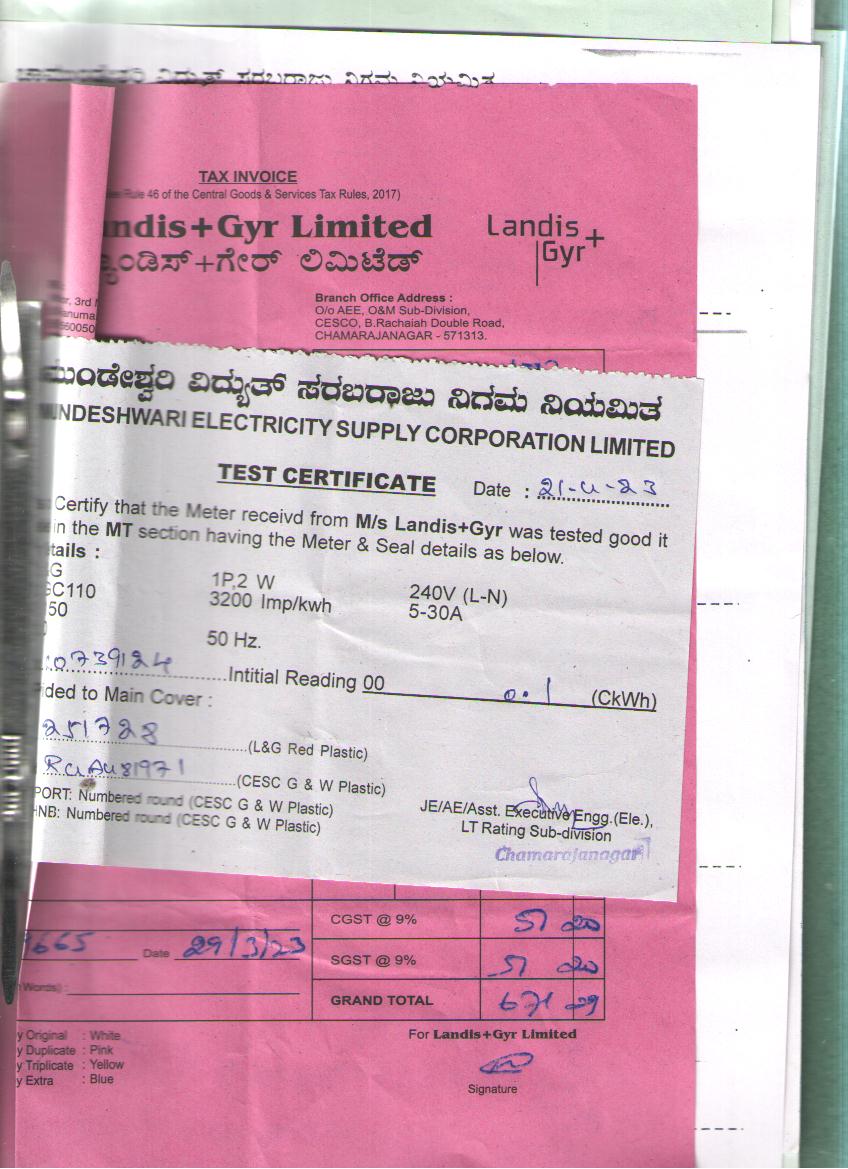 ವಿದ್ಯುತ್ ಸರಬರಾಜು ನಿಗಮ ನಿಯಮಿತ
TAX INVOICE
Rule 46 of the Central Goods & Services Tax Rules, 2017)
ndis+Gyr Limited
Landis+Gyr
ಂಡಿಸ್+ಗೇರ್ ಲಿಮಿಟೆಡ್
, 3rd
anuma
560050
Branch Office Address :
O/o AEE, O&M Sub-Division,
CESCO, B.Rachaiah Double Road,
CHAMARAJANAGAR - 571313.
ಮುಂಡೇಶ್ವರಿ ವಿದ್ಯುತ್ ಸರಬರಾಜು ನಿಗಮ ನಿಯಮಿತ
UNDESHWARI ELECTRICITY SUPPLY CORPORATION LIMITED
TEST CERTIFICATE
Date : 21-4-23
Certify that the Meter receivd from M/s Landis+Gyr was tested good it
in the MT section having the Meter & Seal details as below.
etails :
G 1P,2 W 240V (L-N)
C110 3200 Imp/kwh 5-30A
50
50 Hz.
0739124 Intitial Reading 00 0.1 (CkWh)
ided to Main Cover :
251728 (L&G Red Plastic)
(CESC G & W Plastic)
PORT: Numbered round (CESC G & W Plastic)
HNB: Numbered round (CESC G & W Plastic)
JE/AE/Asst. Executive Engg.(Ele.),
LT Rating Sub-division
Chamarajanagar
CGST @ 9% 51 20
9665 Date 29/3/23
SGST @ 9% 51 20
Words) :
GRAND TOTAL 671 29
y Original : White
y Duplicate : Pink
y Triplicate : Yellow
y Extra : Blue
For Landis+Gyr Limited
Signature